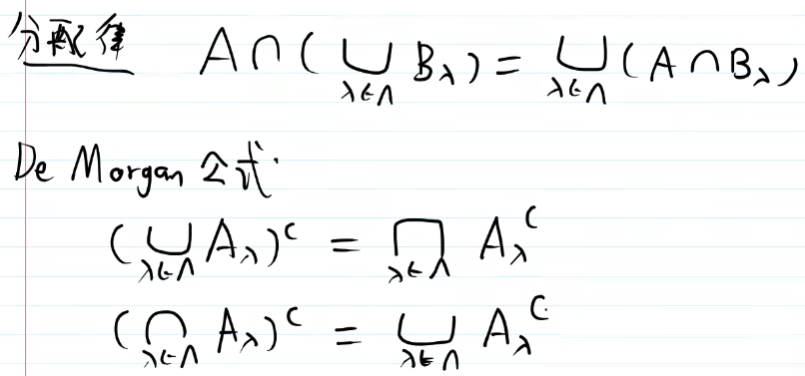 分配律 A∩(⋃_{λ∈Λ} B_λ) = ⋃_{λ∈Λ}(A∩B_λ)
De Morgan 公式.
(⋃_{λ∈Λ} A_λ)^C = ⋂_{λ∈Λ} A_λ^C
(⋂_{λ∈Λ} A_λ)^C = ⋃_{λ∈Λ} A_λ^C